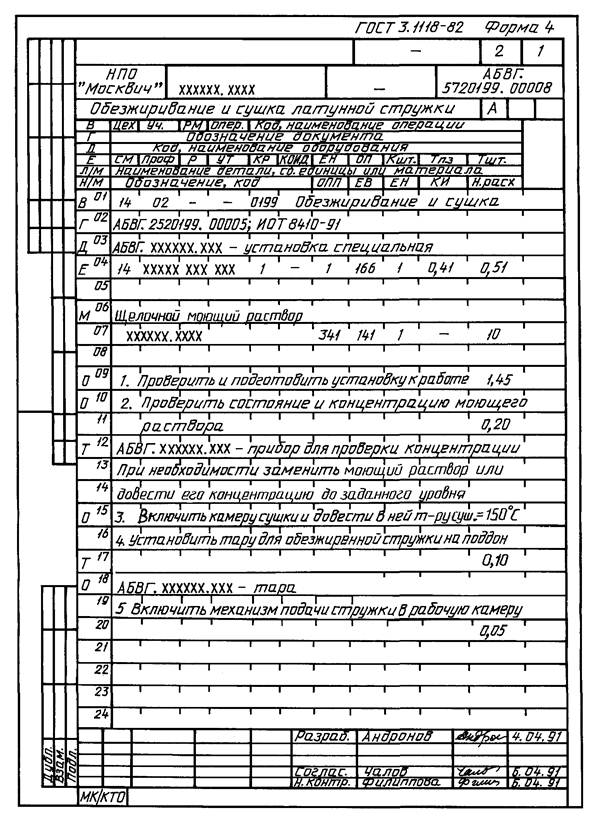 ГОСТ 3.1118-82 Форма 4
— 2 1
НПО "Москвич" XXXXXX. XXXX — АБВГ. 5720199. 00008
Обезжиривание и сушка латунной стружки А
В Цех Уч. РМ Опер. Код, наименование операции
Г Обозначение документа
Д Код, наименование оборудования
Е СМ Проф Р УТ КР КОИД ЕН ОП Кшт. Тпз Тшт.
Л/М Наименование детали, сб. единицы или материала
Н/М Обозначение, код ОПП ЕВ ЕН КИ Н.расх
В 01 14 02 — — 0199 Обезжиривание и сушка
Г 02 АБВГ. 2520199. 00005; ИОТ 8410-91
Д 03 АБВГ. XXXXXX.XXX — установка специальная
Е 04 14 XXXXX XXX XXX 1 — 1 166 1 0,41 0,51
05
М 06 Щелочной моющий раствор
07 XXXXXX. XXXX 341 141 1 — 10
08
О 09 1. Проверить и подготовить установку к работе 1,45
О 10 2. Проверить состояние и концентрацию моющего
11 раствора 0,20
Т 12 АБВГ. XXXXXX.XXX — прибор для проверки концентрации
13 При необходимости заменить моющий раствор или
14 довести его концентрацию до заданного уровня
О 15 3. Включить камеру сушки и довести в ней т-ру суш.=150°С
16 4. Установить тару для обезжиренной стружки на поддон
Т 17 0,10
О 18 АБВГ. XXXXXX.XXX — тара
19 5 Включить механизм подачи стружки в рабочую камеру
20 0,05
21
22
23
24
Разраб. Андронов 4.04.91
Дубл.
Взам.
Подл.
Соглас. Чалов 6.04.91
Н.контр. Филиппова 6.04.91
МК/КТО